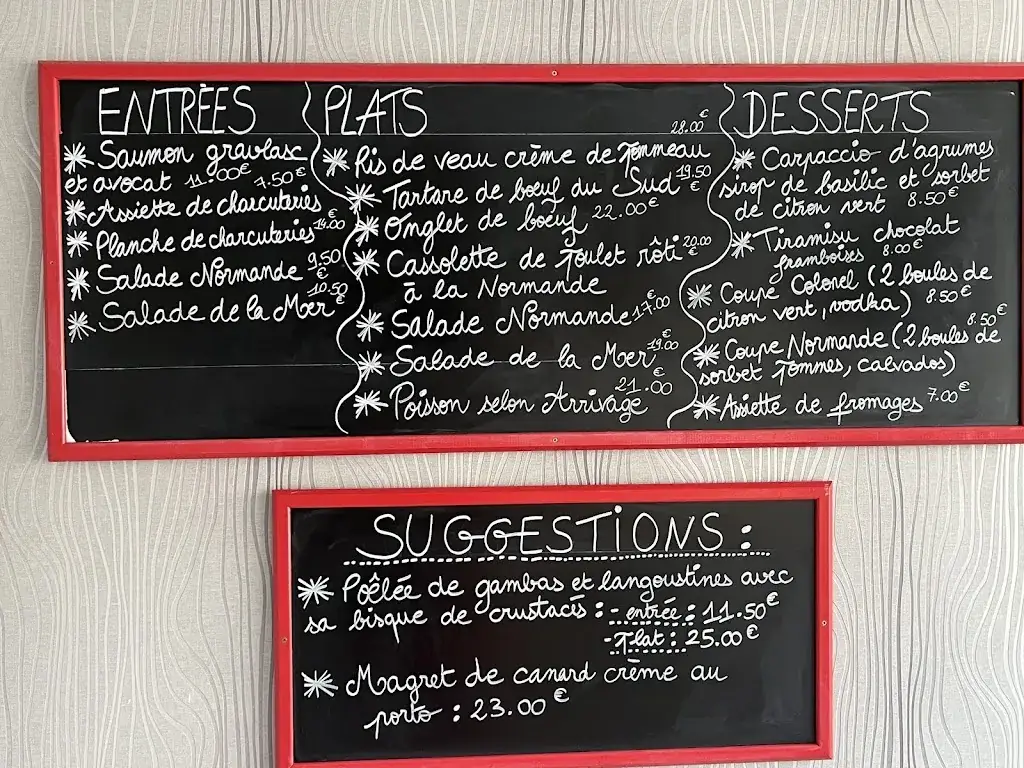 ENTRÉES
* Saumon gravlasc
et avocat 11.00€
* Assiette de charcuteries 7.50€
* Planche de charcuteries 14.00€
* Salade Normande 9.50€
* Salade de la Mer 10.50€
PLATS
* Ris de veau crème de Pommeau 28.00€
* Tartare de bœuf du Sud 19.50€
* Onglet de bœuf 22.00€
* Cassolette de Poulet rôti 20.00€
à la Normande
* Salade Normande 17.00€
* Salade de la Mer 19.00€
* Poisson selon Arrivage 21.00
DESSERTS
* Carpaccio d'agrumes
sirop de basilic et sorbet
de citron vert 8.50€
* Tiramisu chocolat
framboises 8.00€
* Coupe Colonel (2 boules de
citron vert, vodka) 8.50€
* Coupe Normande (2 boules de 8.50€
sorbet Pommes, calvados)
* Assiette de fromages 7.00€
SUGGESTIONS :
* Poêlée de gambas et langoustines avec
sa bisque de crustacés : - entrée : 11.50€
- Plat : 25.00€
* Magret de canard crème au
porto : 23.00€